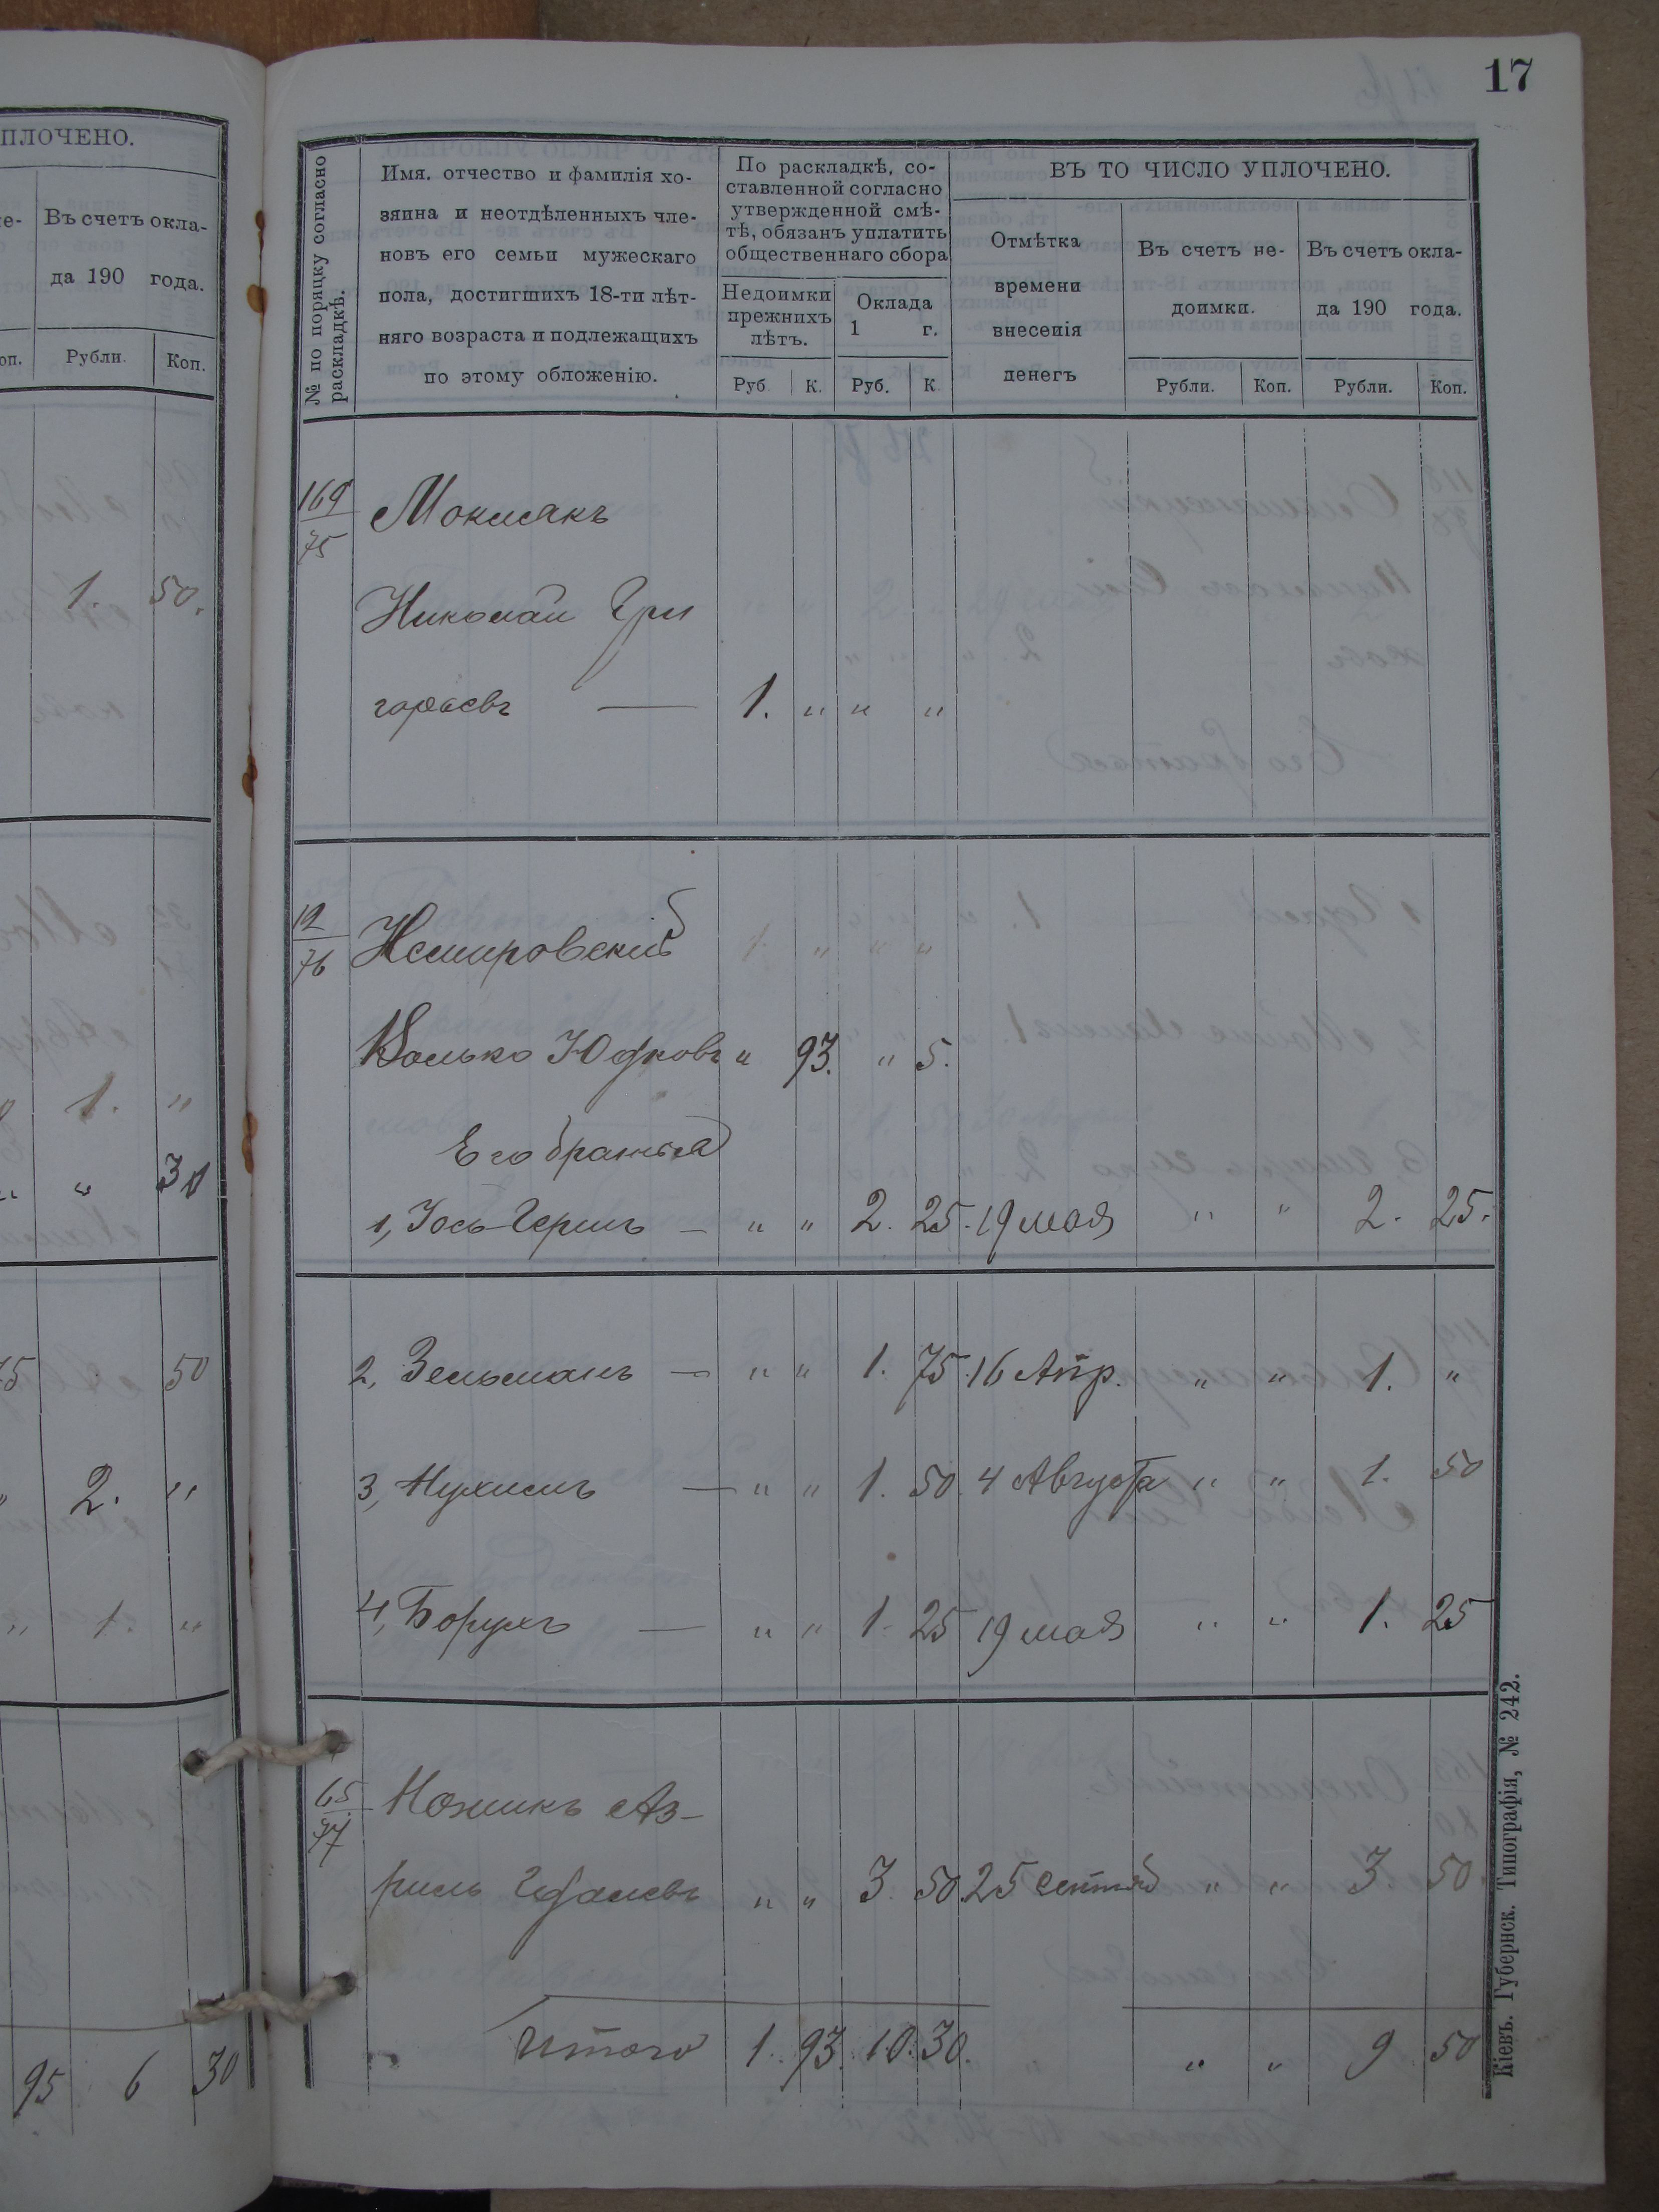 17
ПЛОЧЕНО.
Въ счетъ окла-
да 190 года.
Рубли. Коп.
1. 50.
1. "
" " 30
50
2. "
" 1. "
95 6 30
№ по поряцку согласно
раскладкѣ.
Имя. отчество и фамилія хо-
зяина и неотдѣленныхъ чле-
новъ его семьи мужескаго
пола, достигшихъ 18-ти лѣт-
няго возраста и подлежащихъ
по этому обложенію.
По раскладкѣ, со-
ставленной согласно
утвержденной смѣ-
тѣ, обязанъ уплатить
общественнаго сбора
Недоимки
прежнихъ
лѣтъ.
Руб. К.
Оклада
1 г.
Руб. К.
ВЪ ТО ЧИСЛО УПЛОЧЕНО.
Отмѣтка
времени
внесенія
денегъ
Въ счетъ не-
доимки.
Рубли. Коп.
Въ счетъ окла-
да 190 года.
Рубли. Коп.
169
75
Мокиякъ
Николай Гри
горьевъ — 1. " " "
12
76
Немировскій 1. " " "
Волько Юдковъ " 93. " 5.
Его братья
1, Іось-Гершъ — " " 2. 25. 19 мая " " 2. 25.
2, Зельманъ — " " 1. 75. 16 Апр. " " 1. "
3, Нухимъ — " " 1. 50. 4 Августа " " 1. 50
4, Борухъ — " " 1. 25 19 мая " " 1. 25
65
77
Ножикъ Аз-
риль Гдалевъ " " 3. 50 25 Сентяб " " 3. 50.
Итого 1. 93. 10. 30. " " 9 50
Кіевъ. Губернск. Типографія, № 242.